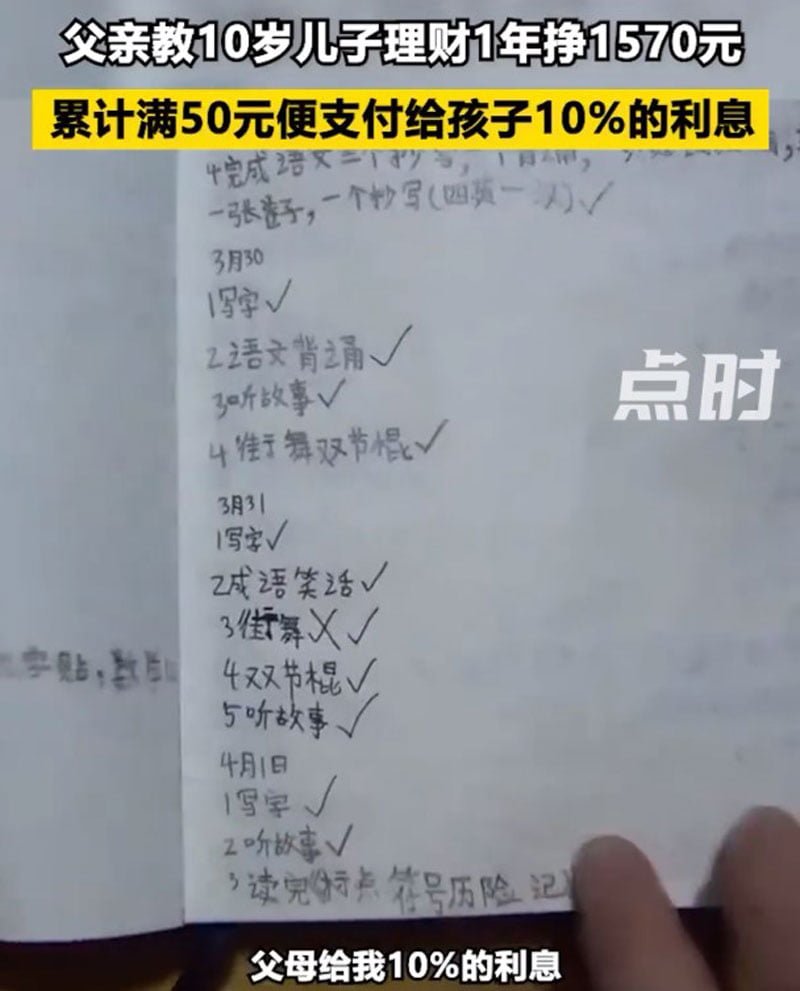 父亲教10岁儿子理财1年挣1570元
累计满50元便支付给孩子10%的利息
4完成语文三个抄写,
一张卷子,一个抄写(四英一汉)✓
3月30
1写字✓
2语文背诵✓
点时
3听故事✓
4街舞双节棍✓
3月31
1写字✓
2成语笑话✓
3街舞X✓
4双节棍✓
字贴,数学
5听故事✓
4月1日
1写字✓
2听故事✓
3读完《标点符号历险记》
父母给我10%的利息